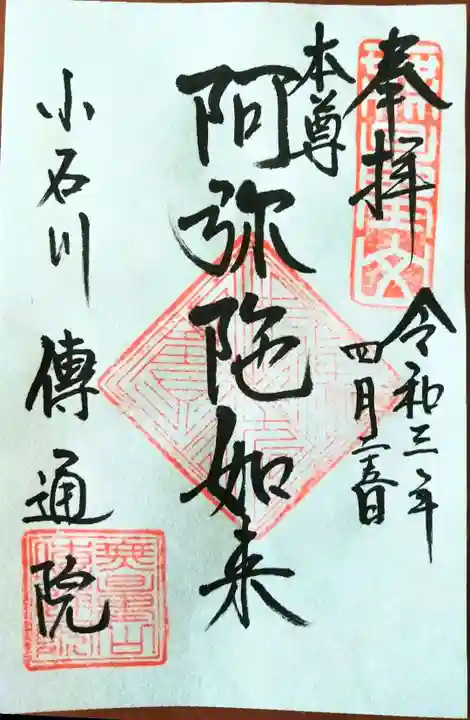 奉拝
令和三年
四月二五日
本尊
阿弥陀如来
小石川 傳通院
無量山